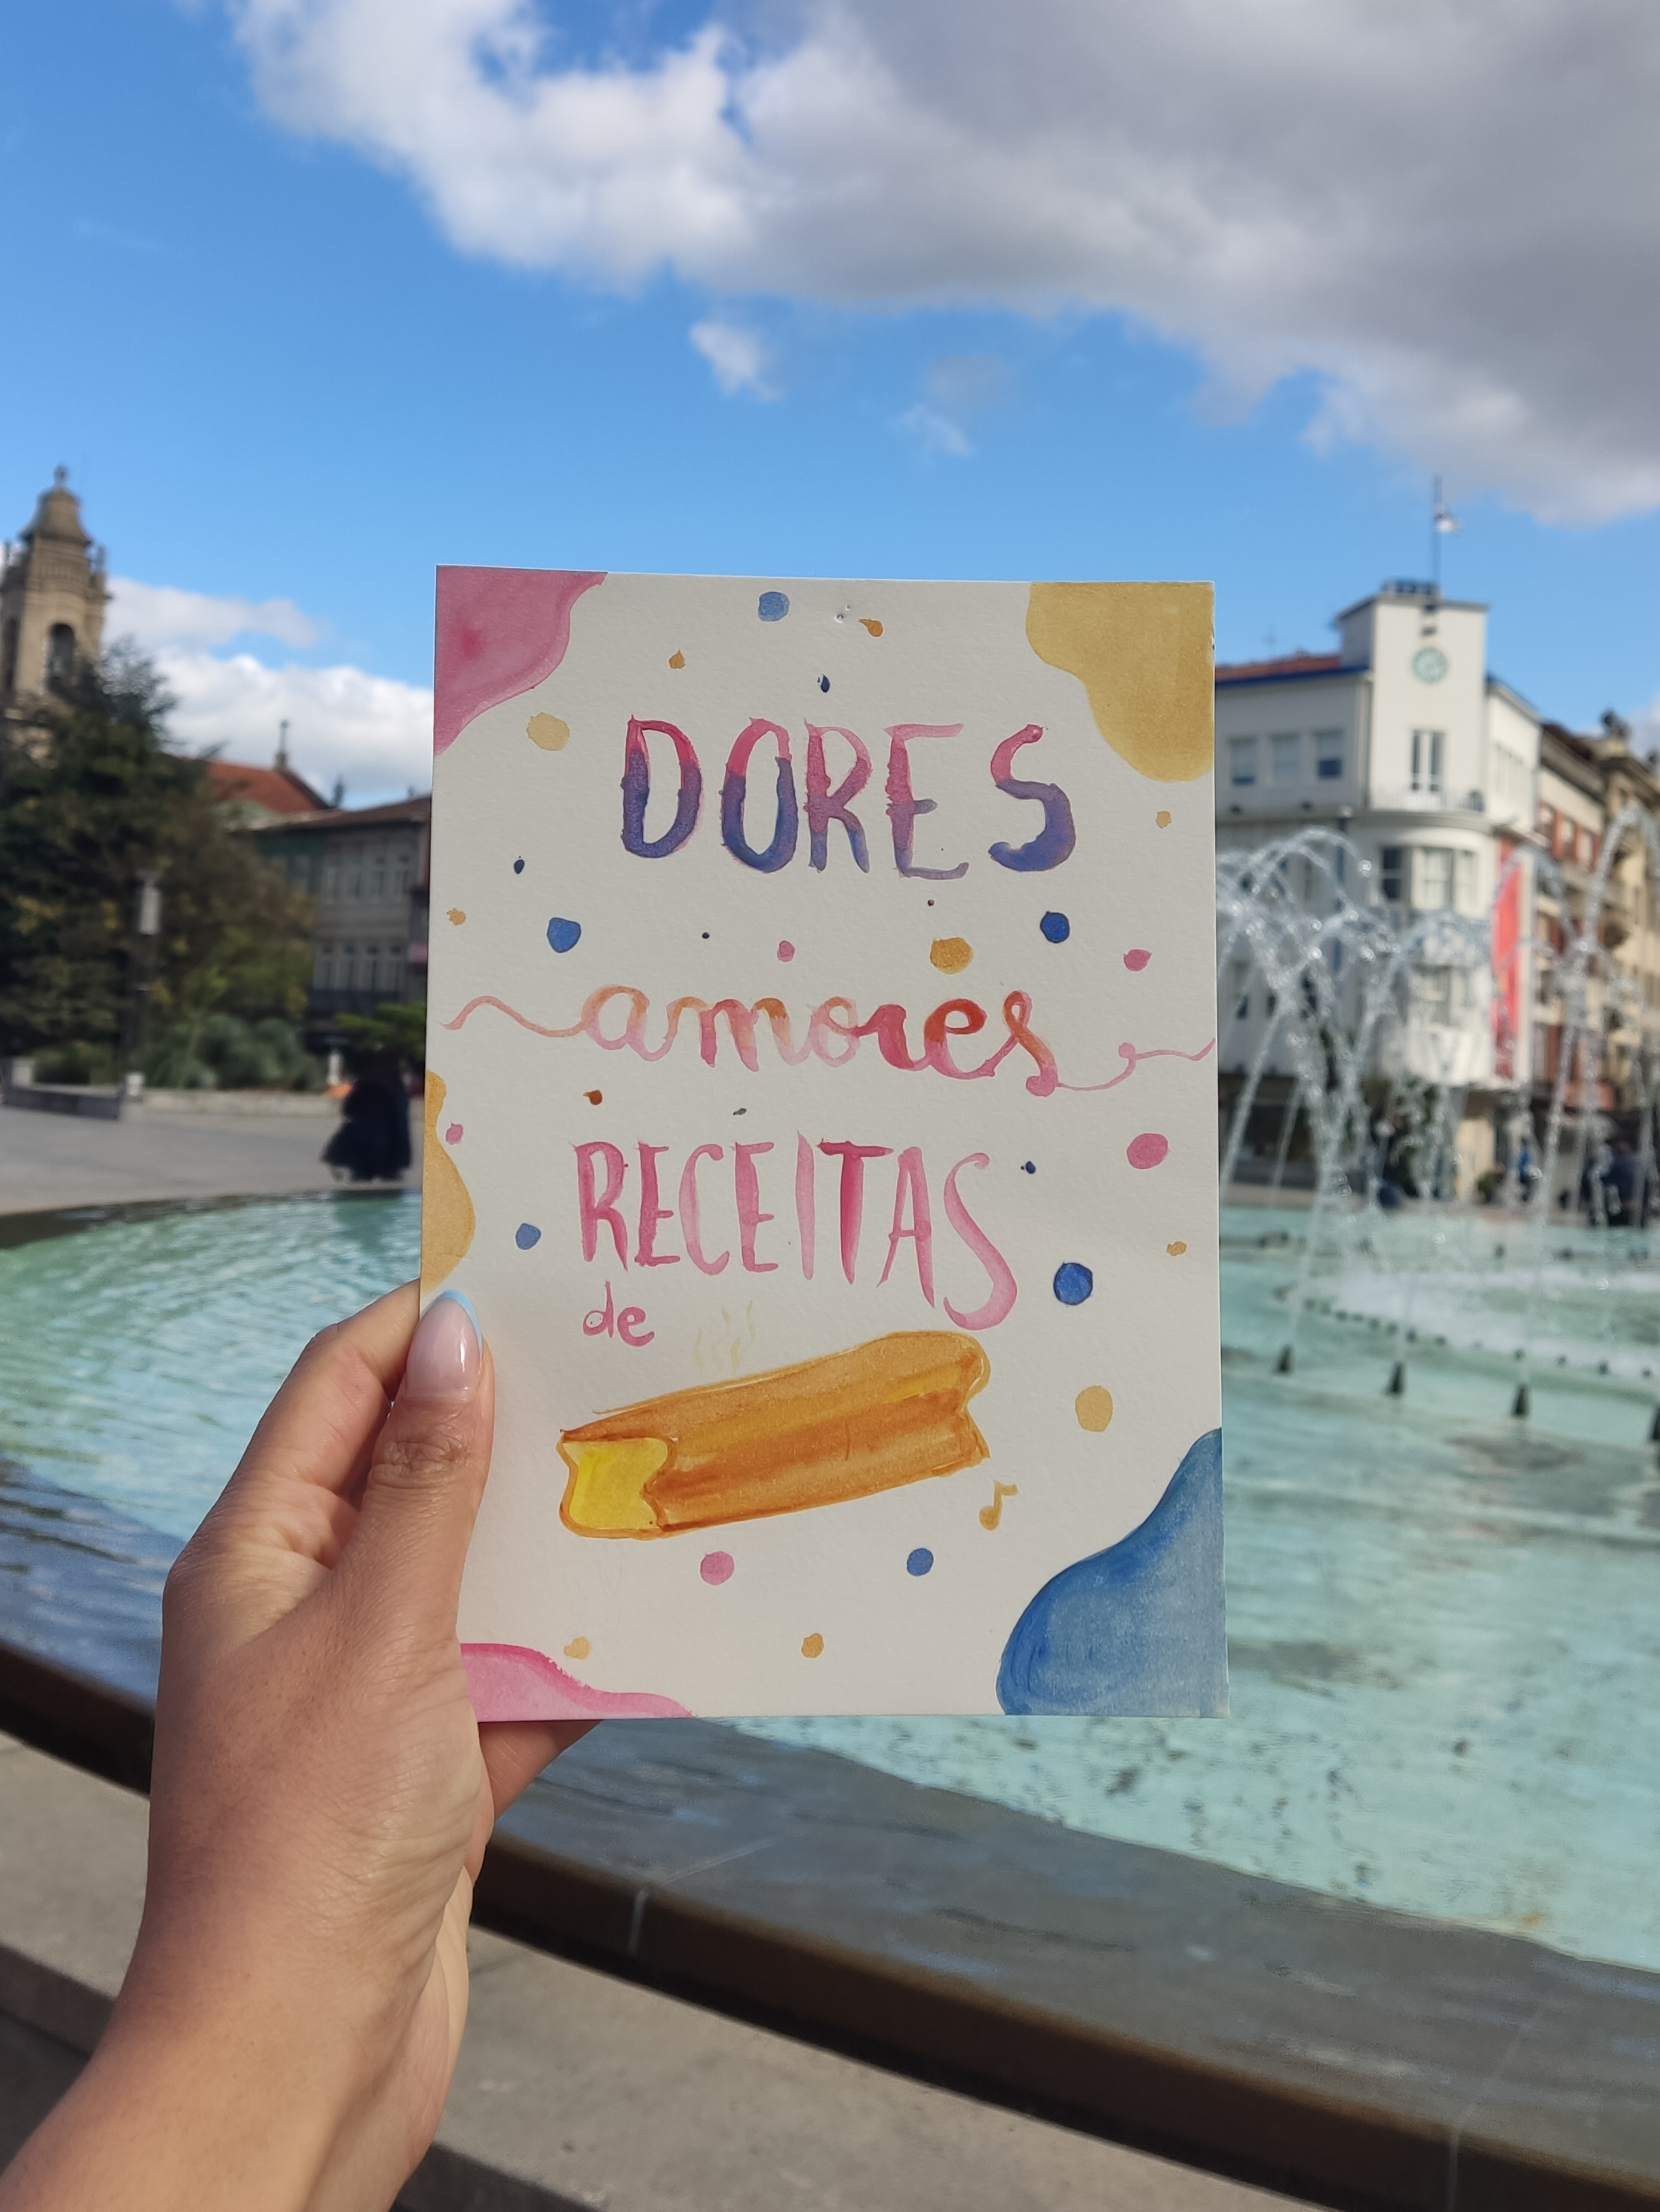 DORES
amores
RECEITAS
de